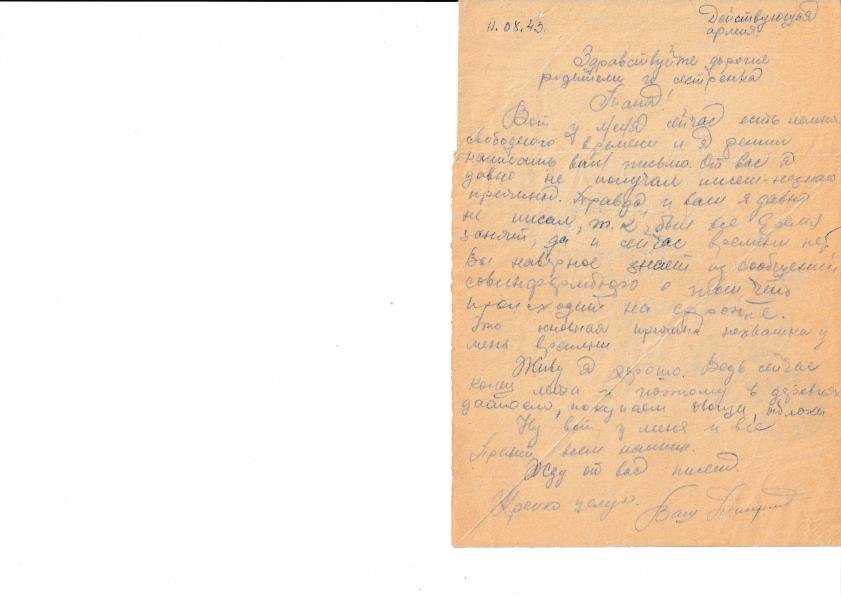 11.08.43. Действующая
армия.
Здравствуйте дорогие
родители и сестренка
Таня!
Вот у меня сейчас есть немно
свободного времени и я решил
написать вам письмо. От вас я
давно не получал писем - незнаю
причины. Правда и вам я давно
не писал, т.к. был все время
занят, да и сейчас времени нет.
Вы наверное знаете из сообщений
совинформбюро о том что
происходит на фронте.
Это основная причина нехватки у
меня времени
Живу я хорошо. Ведь сейчас
конец лета и поэтому в деревнях
покупаем овощи, яблоки
Ну вот у меня и все
Привет всем нашим.
Жду от вас писем.
Крепко целую. Ваш